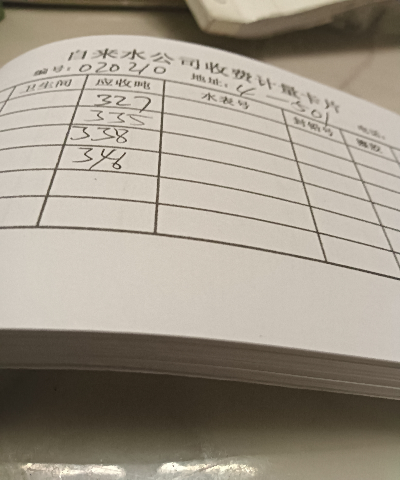 自来水公司收费计量卡片
编号：020210 地址：4-501 电话：
卫生间 应收吨 水表号 封铅号
327
335
338
346